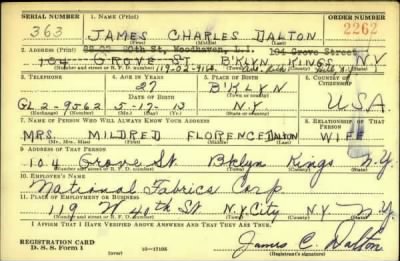 SERIAL NUMBER 1. NAME (Print) ORDER NUMBER
363 JAMES CHARLES DALTON 2262
(First) (Middle) (Last)
2. ADDRESS (Print) 80th St, Woodhaven, L.I. 104 Grove Street
104 GROVE ST. B'KLYN KINGS N.Y.
(Number and street or R. F. D. number) (Town) (County) (State)
3. TELEPHONE 4. AGE IN YEARS 5. PLACE OF BIRTH 6. COUNTRY OF CITIZENSHIP
27 B'KLYN
DATE OF BIRTH (Town or county)
GL 2-9562 5-17-13 N.Y. U.S.A.
(Exchange) (Number) (Mo.) (Day) (Yr.) (State or country)
7. NAME OF PERSON WHO WILL ALWAYS KNOW YOUR ADDRESS 8. RELATIONSHIP OF THAT PERSON
MRS. MILDRED FLORENCE DALTON WIFE
(Mr., Mrs., Miss) (First) (Middle) (Last)
9. ADDRESS OF THAT PERSON
104 Grove St. Bklyn Kings N.Y.
(Number and street or R. F. D. number) (Town) (County) (State)
10. EMPLOYER'S NAME
National Fabrics Corp.
11. PLACE OF EMPLOYMENT OR BUSINESS
119 W 40th ST N.Y. City N.Y. N.Y.
(Number and street or R. F. D. number) (Town) (County) (State)
I AFFIRM THAT I HAVE VERIFIED ABOVE ANSWERS AND THAT THEY ARE TRUE.
REGISTRATION CARD
D. S. S. Form 1 (over) 16—17105 James C. Dalton
(Registrant's signature)